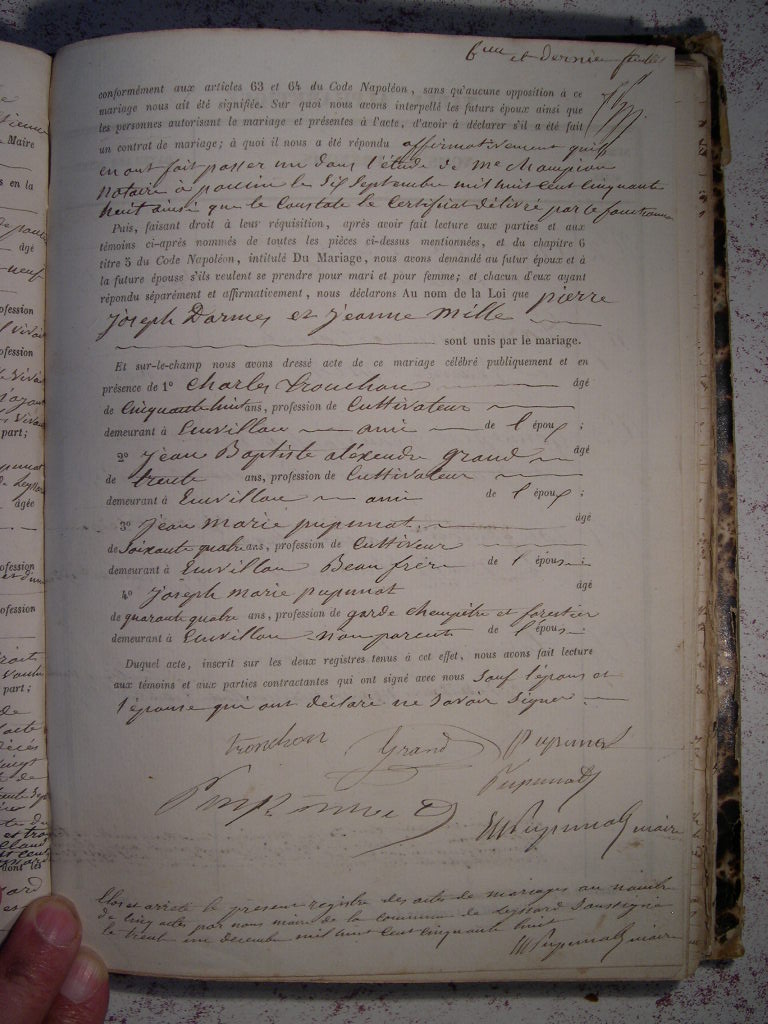 6me et dernier feuillet
conformément aux articles 63 et 64 du Code Napoléon, sans qu'aucune opposition à ce
mariage nous ait été signifiée. Sur quoi nous avons interpellé les futurs époux ainsi que
les personnes autorisant le mariage et présentes à l'acte, d'avoir à déclarer s'il a été fait
un contrat de mariage; à quoi il nous a été répondu affirmativement qu'ils
en ont fait passer un dans l'étude de Me Champion
notaire a poncin le six septembre mil huit cent cinquante
huit ainsi que le Constate le Certificat délivré par le
Puis, faisant droit à leur réquisition, après avoir fait lecture aux parties et aux
témoins ci-après nommés de toutes les pièces ci-dessus mentionnées, et du chapitre 6
titre 5 du Code Napoléon, intitulé Du Mariage, nous avons demandé au futur époux et à
la future épouse s'ils veulent se prendre pour mari et pour femme; et chacun d'eux ayant
répondu séparément et affirmativement, nous déclarons Au nom de la Loi que pierre
joseph Darmes et jeanne mille
sont unis par le mariage.
Et sur-le-champ nous avons dressé acte de ce mariage célébré publiquement et en
présence de 1o Charles tronchon âgé
de Cinquante huit ans, profession de Cultivateur
demeurant à Envillon ami de l'époux;
2o jean Baptiste aléxendre grand âgé
de trente ans, profession de Cultivateur
demeurant à Envillon ami de l'époux;
3o jean marie pupunat, âgé
de Soixante quatre ans, profession de Cultiveur
demeurant à Envillon Beau frère de l'épouse:
4o joseph marie pupunat âgé
de quarante quatre ans, profession de garde champêtre et forestier
demeurant à Envillon non parent de l'épouse:
Duquel acte, inscrit sur les deux registres tenus à cet effet, nous avons fait lecture
aux témoins et aux parties contractantes qui ont signé avec nous sauf l'époux et
l'épouse qui ont déclaré ne Savoir Signer.
tronchon Grand Pupunat
Pupunat
Pupunat maire
Clos et arreté le présent registre des actes de mariages au nombre
de Cinq actes par nous maire de la commune de Leyssard Soussigné
le trente un décembre mil huit Cent Cinquante huit
Pupunat maire